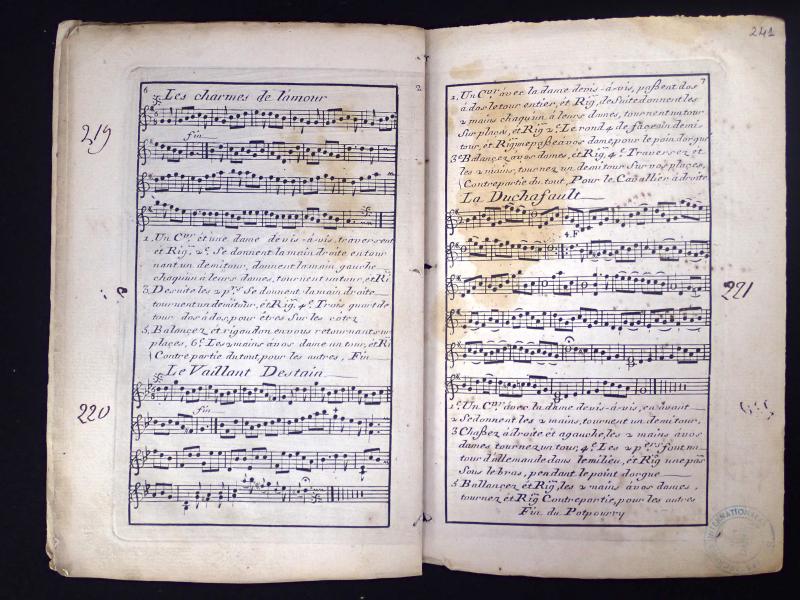 6
Les charmes de l'amour
219
fin
1. Un C.er et une dame de vis-à-vis, traversent
et Rig. 2.e Se donnent la main droite en tour
nant un demi tour, donnent la main gauche
chaqu'un à leurs dames, tournent un tour, et Ri
3. De suite les 2 p.rs Se donnent la main droite
tournent un demi tour, et Rig. 4.e Trois quart de
tour dos à dos, pour êtres Sur les côtez
5. Balançez et rigaudon en vous retournant sur
plaçes, 6.e Les 2 mains à vos dame un tour, et Ri
Contre partie du tout, pour les autres, Fin
Le Vaillant Destain
220
fin
2
241
7
1. Un C.er avec la dame de vis-à-vis, paßent dos
à dos le tour entier, et Rig. de Suite donnent les
2 mains chaqu'un à leurs dames, tournent un tour
Sur plaçe, et Rig 2.e Le rond 4 de façe un demi
tour, et Rig paße à vos dame, pour le poin d'orgue
3.e Balançez à vos dames, et Rig, 4.e Traversez et
les 2 mains, tournez un demi tour Sur vos plaçes,
Contre partie du tout, Pour le Cavallier à droite
La Duchafault
4. F
221
1.e Un C.er avec la dame de vis-à-vis, en avant
2 Se donnent les 2 mains, tournent un demi tour,
3 Chaßez à droite et a gauche, les 2 mains à vos
dames tournez un tour, 4.e Les 2 p.ers font un
tour d'allemande dans le milieu, et Rig une pas
Sous le bras, pendant le point d'orgue
5 Ballançez et Rig, les 2 mains à vos dames,
tournez et Rig Contre partie, pour les autres
Fin du Potpourry
INTERNATIONALES